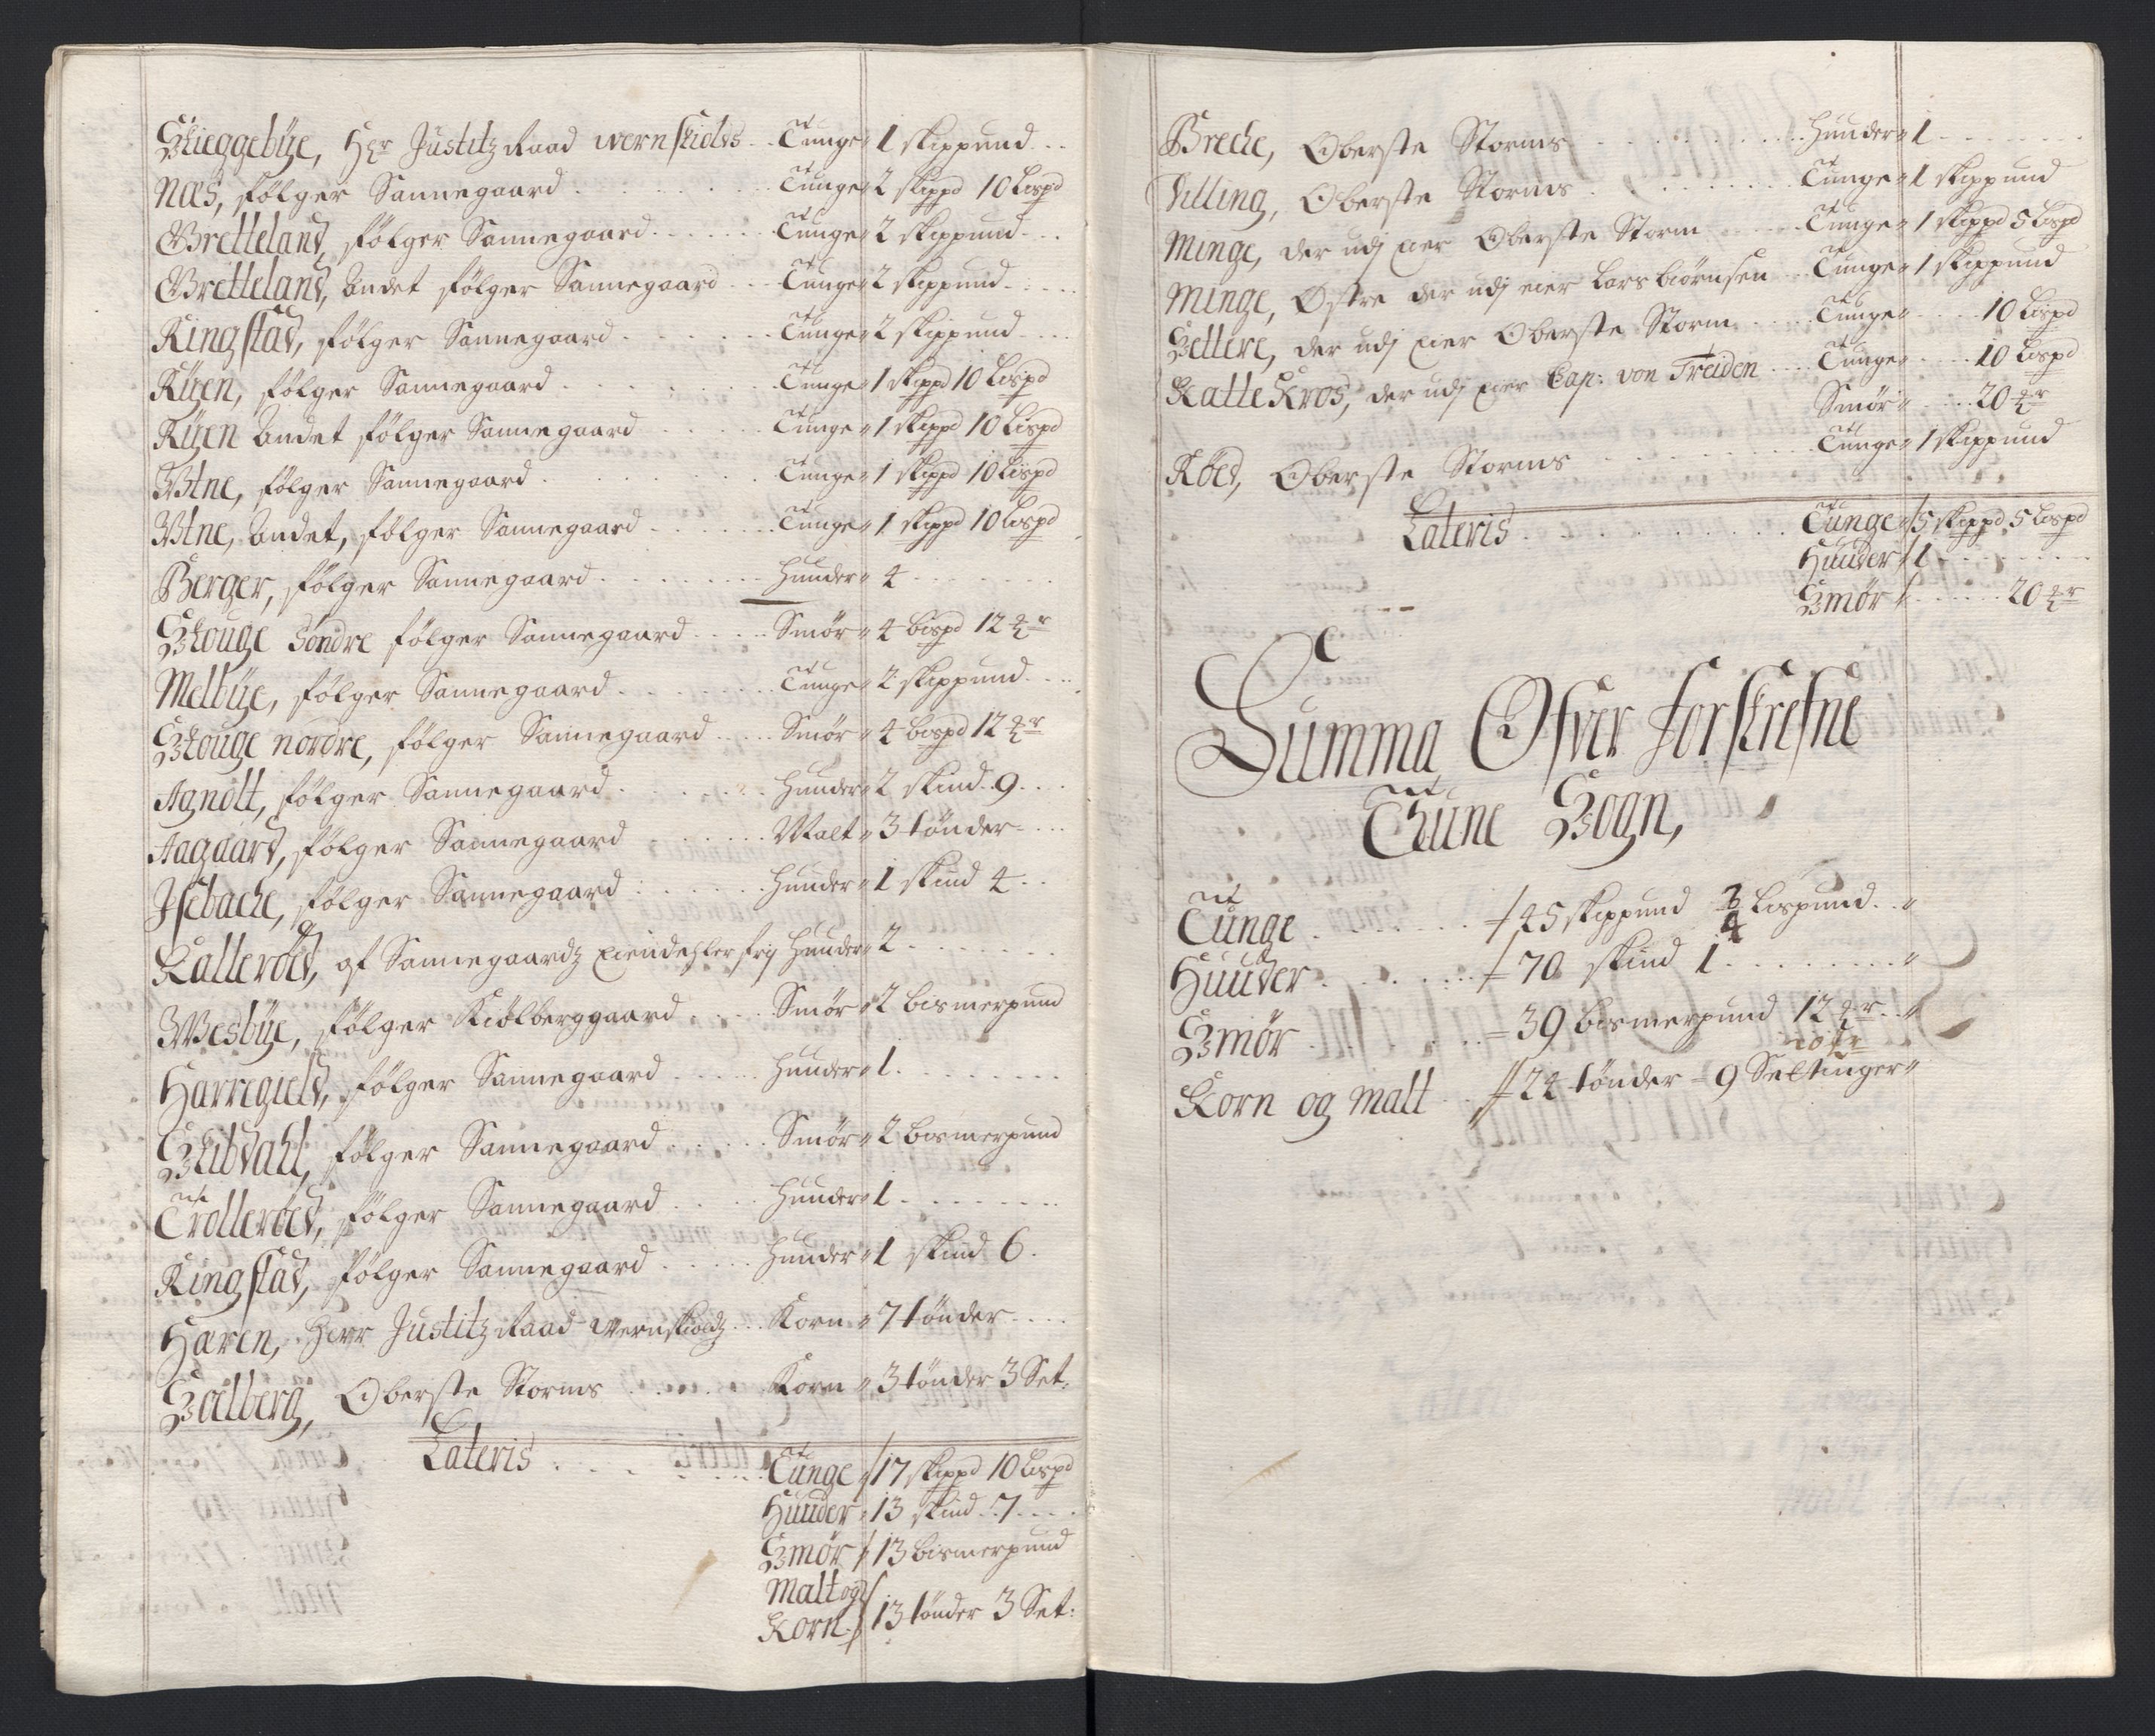 Skieggebÿe, Hr Justitz Raad wernskiolds .. Tunge 1 skippund
Næs, følger Sannegaard Tunge 2 skippd 10 Lispd
Gretteland, følger Sannegaard Tunge 2 skippund
Gretteland, andet følger Sannegaard Tunge 2 skippund
Ringstad, følger Sannegaard Tunge 2 skippund
Rÿen, følger Sannegaard Tunge 1 skippd 10 Lispd
Rÿen andet følger Sannegaard Tunge 1 skippd 10 Lispd
Utne, følger Sannegaard Tunge 1 skippd 10 Lispd
Utne, andet, følger Sannegaard Tunge 1 skippd 10 Lispd
Berger, følger Sannegaard Huuder 4
Skouge Søndre følger Sannegaard Smør 4 bispd 12 mr
Melbÿe, følger Sannegaard Tunge 2 skippund
Skouge nordre, følger Sannegaard Smør 4 bispd 12 mr
Agnolt, følger Sannegaard Huuder 2 skind 9
Aagaard, følger Sannegaard Malt 3 tønder
Isebache, følger Sannegaard Huuder 1 skind 4
Kallerød, af Sannegaardz Huuder 2
Wesbÿe, følger Kiølberggaard Smør 2 bismerpund
Harregield, følger Sannegaard Huuder 1
Skibdahl, følger Sannegaard Smør 2 bismerpund
Trollerød, følger Sannegaard Huuder 1
Ringstad, følger Sannegaard Huuder 1 skind 6
Haren, Herr Justitz Raad wernskioldz Korn 7 tønder
Soelberg, Oberste Storms Korn 3 tønder 3 Set:
Lateris Tunge 17 skippd 10 Lispd
Huuder 13 skind 7
Smør 13 bismerpund
Malt og
Korn 13 tønder 3 Set:
Breche, Oberste Storms Huuder 1
Villing, Oberste Storms Tunge 1 skippund
Minge, der udj eier Oberste Storm Tunge 1 skippd 5 Lispd
Minge, Østre der udj eier Lars biørnsen Tunge 1 skippund
Sellere, der udj eier Oberste Storm Tunge 10 Lispd
KatteKros, der udj eier Cap: von Treiden Tunge 10 Lispd
Smør 20 mr
Røed, Oberste Storms Tunge 1 skippund
Lateris Tunge 5 skippd 5 Lispd
Huuder 1
Smør 20 mr
Summa Ofver forskrefne
Thune Sogn,
Tunge 45 skippund 3/4 Lispund
Huuder 70 skind 1
Smør 39 bismerpund 12 mr
Korn og malt 24 tønder 9 Seltinger